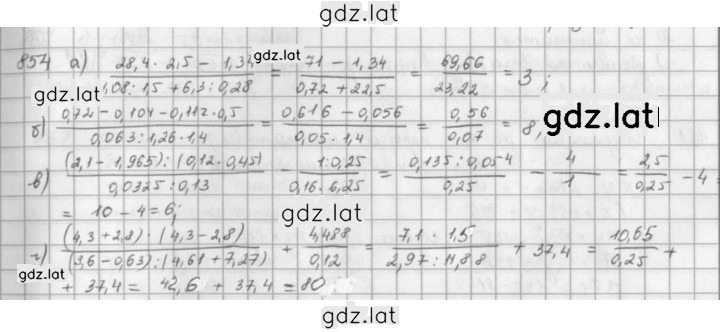 gdz.lat
854 а) (28,4 · 2,5 - 1,34)/(1,08 : 1,5 + 6,3 : 0,28) = (71 - 1,34)/(0,72 + 22,5) = 69,66/23,22 = 3;
gdz.lat
gdz.lat
б) (0,72 - 0,104 - 0,112 · 0,5)/(0,063 : 1,26 · 1,4) = (0,616 - 0,056)/(0,05 · 1,4) = 0,56/0,07 = 8,
gdz.lat
в) ((2,1 - 1,965) : (0,12 · 0,45))/(0,0325 : 0,13) - (1 : 0,25)/(0,16 · 6,25) = (0,135 : 0,054)/0,25 - 4/1 = 2,5/0,25 - 4 =
= 10 - 4 = 6;
gdz.lat
г) ((4,3 + 2,8) · (4,3 - 2,8))/((3,6 - 0,63) : (4,61 + 7,27)) + 4,488/0,12 = (7,1 · 1,5)/(2,97 : 11,88) + 37,4 = 10,65/0,25 +
gdz.lat
+ 37,4 = 42,6 + 37,4 = 80
gdz.lat
gdz.lat